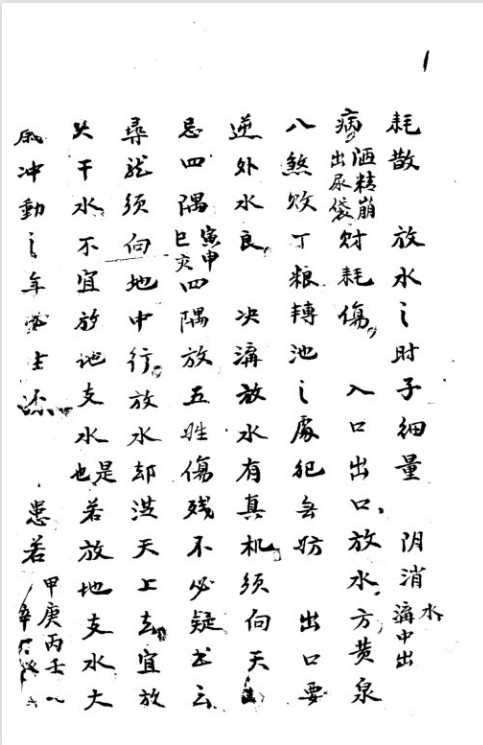 耗散 放水之时子细量 阴消水溝中出
病洒精崩出尿袋财耗傷 入口出口放水方黄泉
八煞敗丁粮轉池之處犯無妨 出口要
逆外水良 决溝放水有真机須向天
忌四隅寅申巳亥四隅放五姓傷残不必疑书云
尋龍須向地中行放水却從天上去宜放
天干水不宜放地支水是也若放地支水大
冲動之年必主 患若甲庚丙壬